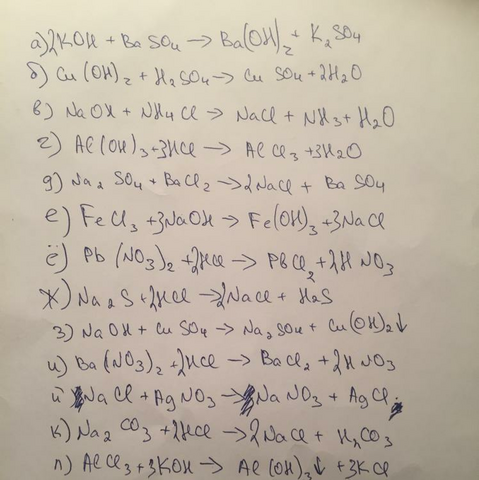 а) 2KOH + BaSO₄ → Ba(OH)₂ + K₂SO₄
б) Cu(OH)₂ + H₂SO₄ → CuSO₄ + 2H₂O
в) NaOH + NH₄Cl → NaCl + NH₃ + H₂O
г) Al(OH)₃ + 3HCl → AlCl₃ + 3H₂O
д) Na₂SO₄ + BaCl₂ → 2NaCl + BaSO₄
е) FeCl₃ + 3NaOH → Fe(OH)₃ + 3NaCl
ё) Pb(NO₃)₂ + 2HCl → PbCl₂ + 2HNO₃
ж) Na₂S + 2HCl → 2NaCl + H₂S
з) NaOH + CuSO₄ → Na₂SO₄ + Cu(OH)₂↓
и) Ba(NO₃)₂ + 2HCl → BaCl₂ + 2HNO₃
й) NaCl + AgNO₃ → NaNO₃ + AgCl
к) Na₂CO₃ + 2HCl → 2NaCl + H₂CO₃
л) AlCl₃ + 3KOH → Al(OH)₃↓ + 3KCl